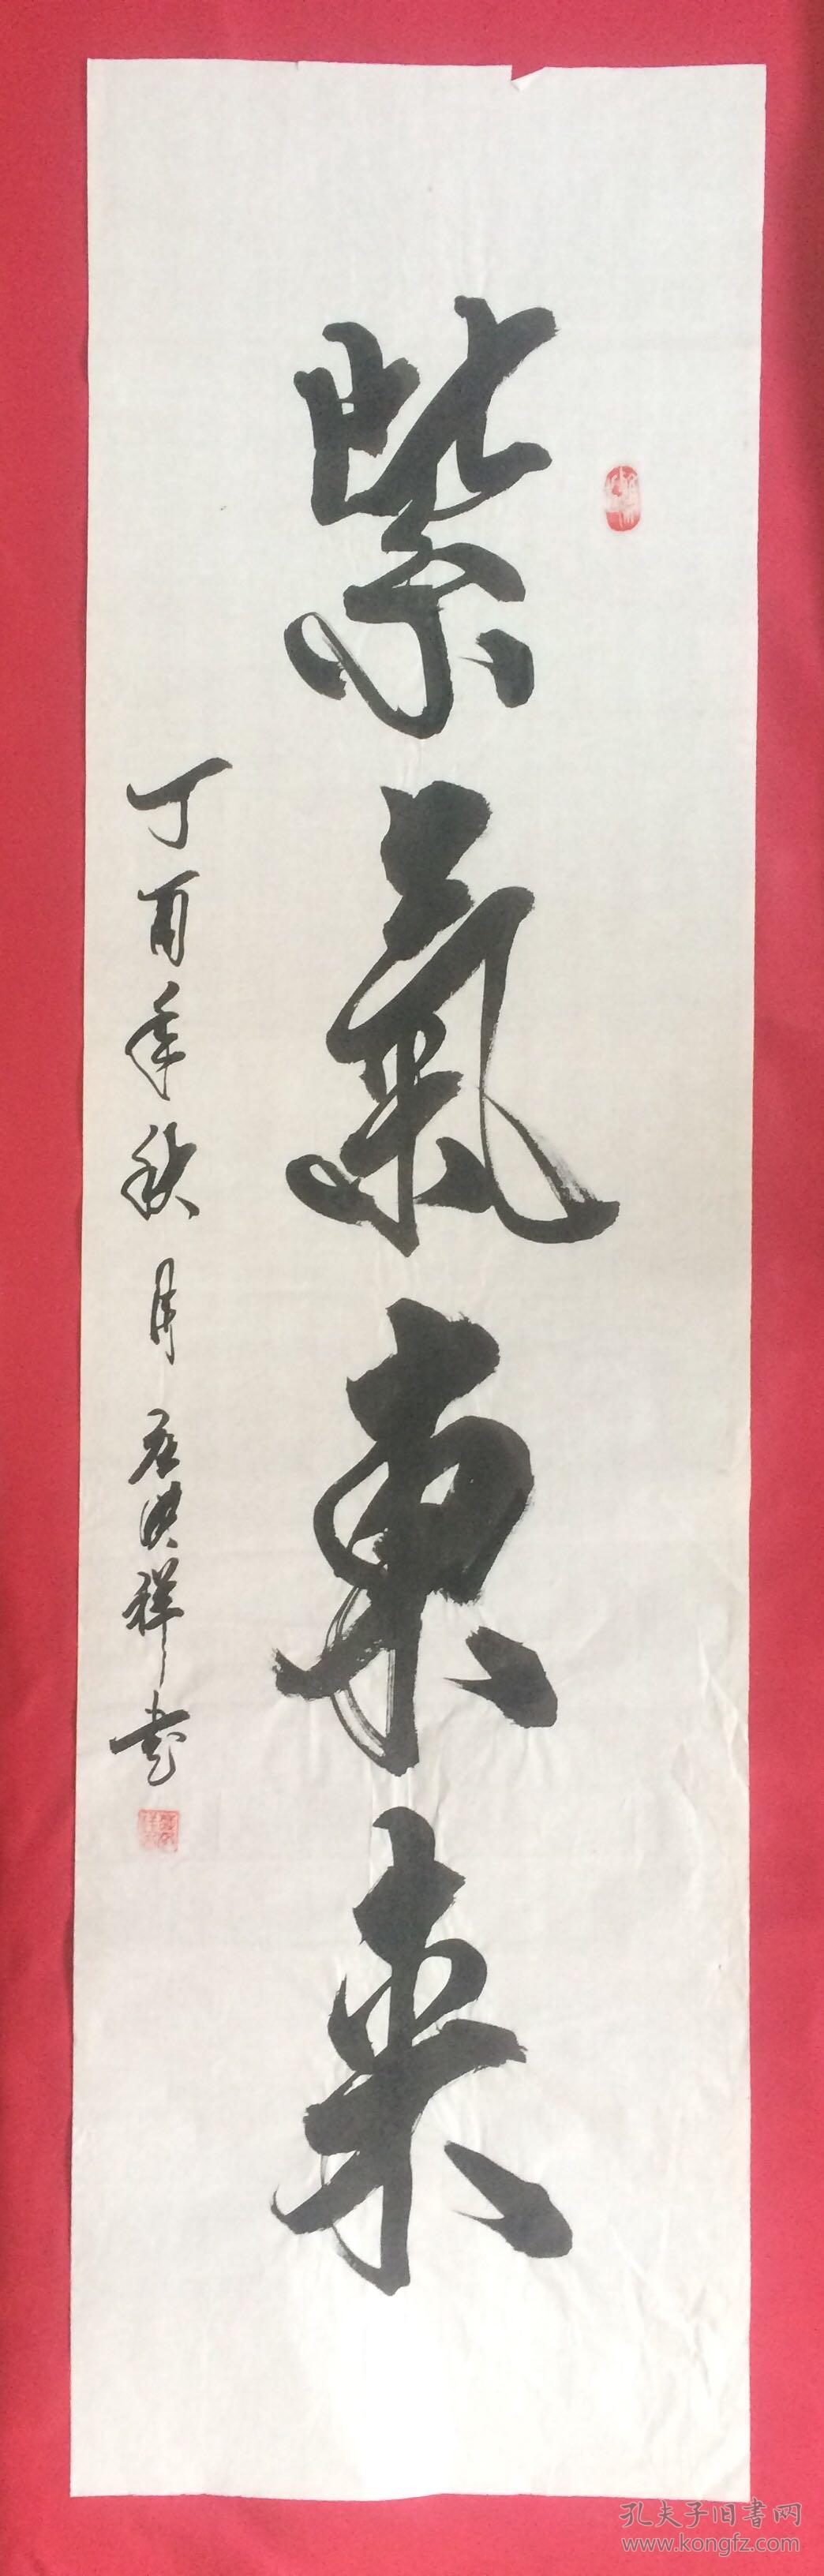 紫氣東来
丁酉年秋月 洪祥书
孔夫子旧書网
www.kongfz.com